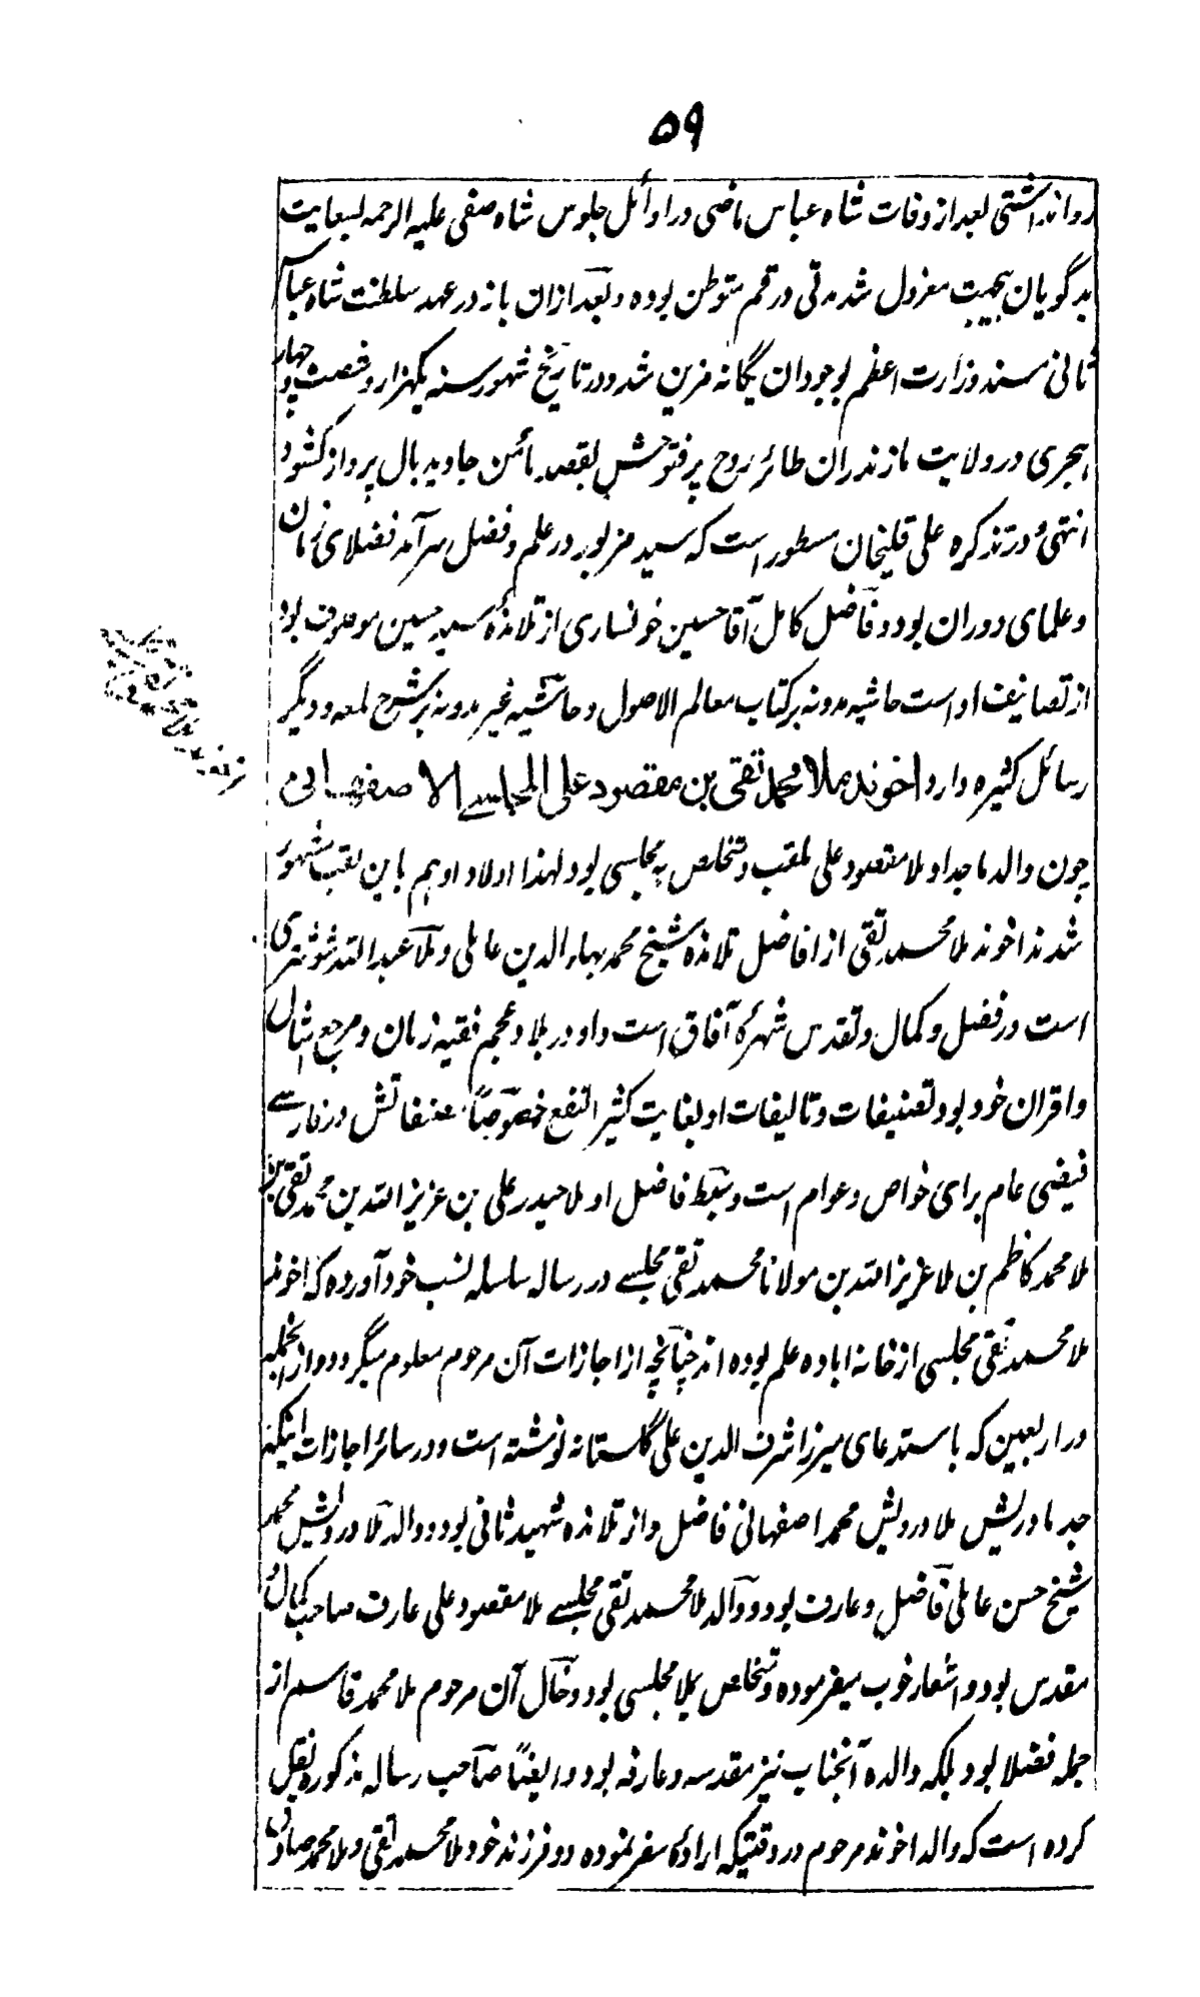 ۵۹
روانداشتی بعد از وفات شاه عباس ماضی در اوائل جلوس شاه صفی علیه الرحمه بسعایت
بدگویان بیجهت معزول شد مدتی در قم متوطن بوده و بعد ازان باز در عهد سلطنت شاه عباس
ثانی مسند وزارت اعظم بوجود ان یگانه مزین شد و در تاریخ شهور سنه یکهزار و شصت و چهار
هجری در ولایت مازندران طائر روح پرفتوحش بقصد مأمن جاوید بال پرواز کشود
انتهیٰ و در تذکره علی قلیخان مسطور است که سید مزبور در علم و فضل سرآمد فضلای زمان
و علمای دوران بود و فاضل کامل آقا حسین خونساری از تلامذهٔ سید حسین موصوف بود
از تصانیف او است حاشیه مدونه بر کتاب معالم الاصول و حاشیه غیر مدونه بر شرح لمعه و دیگر
رسائل کثیره دارد اخوند ملا محمد تقی بن مقصود علی المجلسے الاصفهانی
چون والد ماجد او ملا مقصود علی ملقب و تخلص به مجلسی بود لهذا اولاد او هم باین لقب مشهور
شدند اخوند ملا محمد تقی از افاضل تلامذه شیخ محمد بهاء الدین عاملی و ملا عبد الله شوشتری
است در فضل و کمال و تقدس شهرهٔ آفاق است و او در بلاد عجم فقیه زمان و مرجع امثال
و اقران خود بود تصنیفات و تالیفات او بغایت کثیر النفع خصوصاً مصنفاتش در فارسے
فیضی عام برای خواص و عوام است و سبط فاضل او ملا حیدر علی بن عزیز الله بن محمد تقی بن
ملا محمد کاظم بن ملا عزیز الله بن مولانا محمد تقی مجلسے در رساله سلسله نسب خود آورده که اخوند
ملا محمد تقی مجلسی از خانه اباده علم بوده اند چنانچه از اجازات آن مرحوم معلوم میگردد و از انجمله
در اربعین که باستدعای میرزا شرف الدین علی گلستانه نوشته است و در سائر اجازات اینکه
جد مادریش ملا درویش محمد اصفهانی فاضل و از تلامذه شهید ثانی بود و والد ملا درویش محمد
شیخ حسن عاملی فاضل و عارف بود و والد ملا محمد تقی مجلسے ملا مقصود علی عارف صاحب کمال و
مقدس بود و اشعار خوب میفرموده و تخلص بملا مجلسی بود و خال آن مرحوم ملا محمد قاسم از
جمله فضلا بود بلکه والده آنجناب نیز مقدسه و عارفه بود و ایضاً صاحب رساله مذکوره نقل
کرده است که والد اخوند مرحوم در وقتیکه ارادهٔ سفر نموده دو فرزند خود ملا محمد تقی و ملا محمد صادق